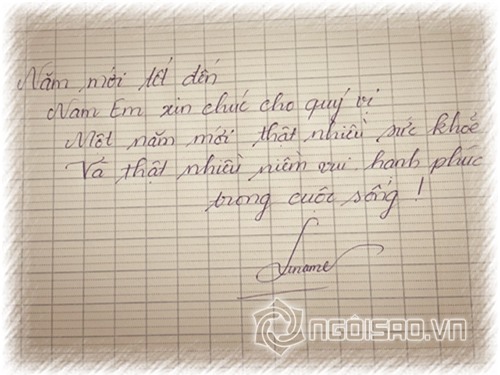 Năm mới tết đến
Nam Em xin chúc cho quý vị
Một năm mới thật nhiều sức khoẻ
Và thật nhiều niềm vui hạnh phúc
trong cuộc sống !
NGÔISAO.VN